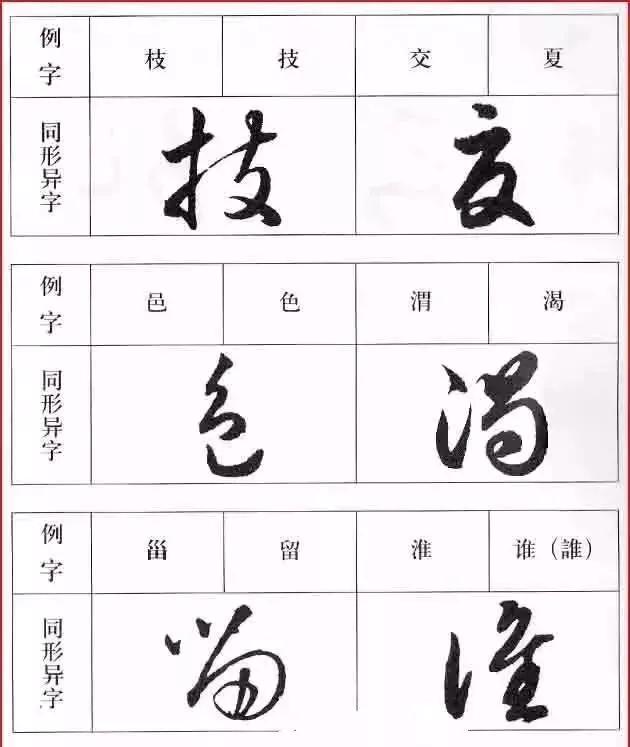 例字 枝 技 交 夏
同形异字
例字 邑 色 渭 渴
同形异字
例字 留 淮 谁（誰）
同形异字